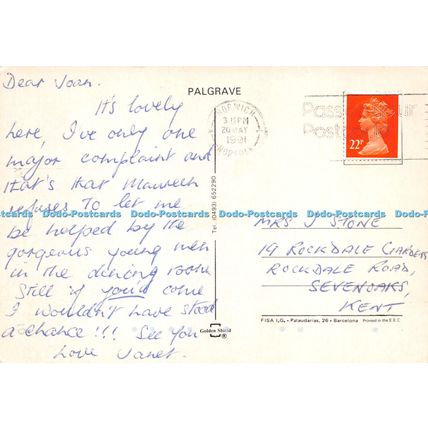 Dear Joan.
PALGRAVE
It's lovely
here, I've only one
major complaint and
that's that Maureen
refuses to let me
be helped by the
gorgeous young men
in the dining room
Still if you'd come
I wouldn't have stood
a chance!!! See You
Love Janet.
NORWICH
3 PM
20 MAY
1991
NORFOLK
Pass
Post
22P
Tel. (0493) 652290
MRS J STONE
19 ROCKDALE GARDENS
ROCKDALE ROAD,
SEVENOAKS,
KENT
Golden Shield
®
FISA I.G. - Palaudarias, 26 - Barcelona Printed in the E.E.C.
Dodo-Postcards Dodo-Postcards Dodo-Postcards Dodo-Postcards Dodo-Postcards